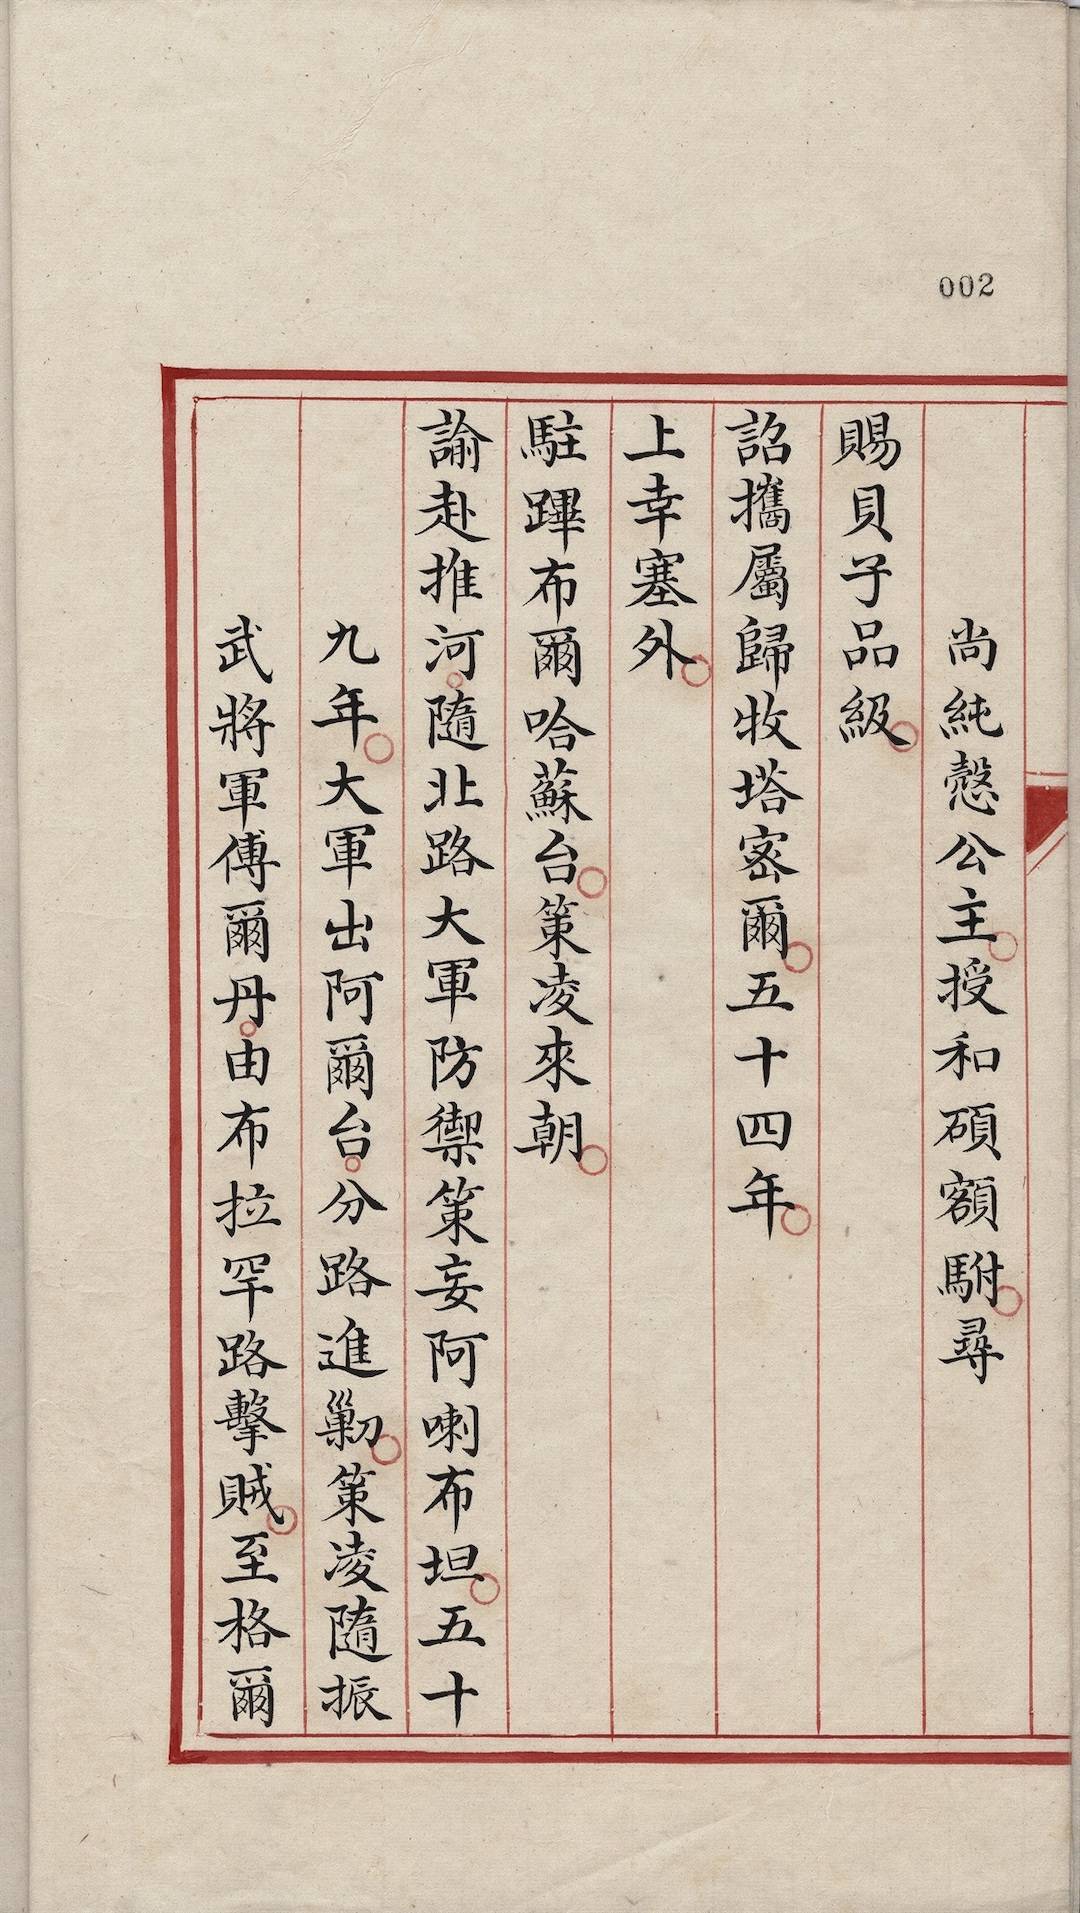 002
尚純慤公主。授和碩額駙。尋
賜貝子品級。
詔攜屬歸牧塔密爾。五十四年。
上幸塞外。
駐蹕布爾哈蘇台。策凌來朝。
諭赴推河。隨北路大軍防禦策妄阿喇布坦。五十
九年。大軍出阿爾台。分路進剿。策凌隨振
武將軍傅爾丹。由布拉罕路擊賊。至格爾